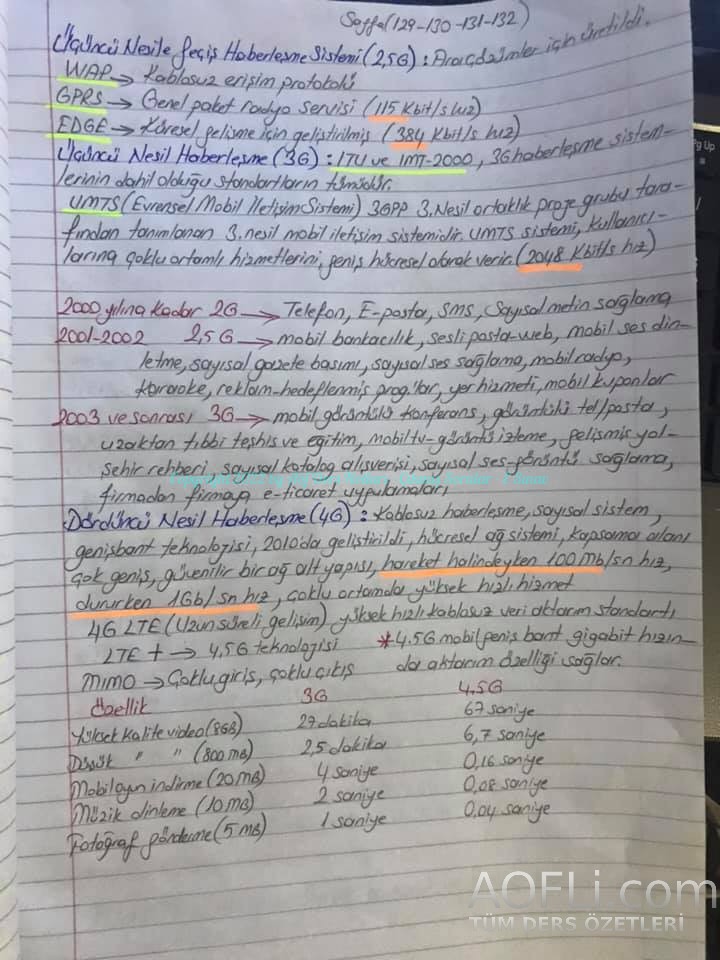 Sayfa (129-130-131-132)
Üçüncü Nesile Geçiş Haberleşme Sistemi (2,5G): Ara çözümler için üretildi.
WAP → Kablosuz erişim protokolü
GPRS → Genel paket radyo servisi (115 Kbit/s hız)
EDGE → Küresel gelişme için geliştirilmiş (384 Kbit/s hız)
Üçüncü Nesil Haberleşme (3G): ITU ve IMT-2000, 3G haberleşme sistem-
lerinin dahil olduğu standartların tümüdür.
UMTS (Evrensel Mobil İletişim Sistemi) 3GPP 3. Nesil ortaklık proje grubu tara-
fından tanımlanan 3. nesil mobil iletişim sistemidir. UMTS sistemi, kullanıcı-
larına çoklu ortamlı hizmetlerini, geniş hücresel olarak verir. (2048 Kbit/s hız)
2000 yılına kadar 2G → Telefon, E-posta, SMS, Sayısal metin sağlama
2001-2002 2,5G → mobil bankacılık, sesli posta-web, mobil ses din-
letme, sayısal gazete basımı, sayısal ses sağlama, mobil radyo,
karaoke, reklam-hedeflenmiş prog.'lar, yer hizmeti, mobil kuponlar
2003 ve sonrası 3G → mobil görüntülü konferans, görüntülü tel/posta,
uzaktan tıbbi teşhis ve eğitim, mobil tv-görüntü izleme, gelişmiş yol-
şehir rehberi, sayısal katalog alışverişi, sayısal ses-görüntü sağlama,
firmadan firmaya e-ticaret uygulamaları
Dördüncü Nesil Haberleşme (4G): Kablosuz haberleşme, sayısal sistem,
genişbant teknolojisi, 2010'da geliştirildi, hücresel ağ sistemi, kapsama alanı
çok geniş, güvenilir bir ağ alt yapısı, hareket halindeyken 100Mb/sn hız,
dururken 1Gb/sn hız, çoklu ortamda yüksek hızlı hizmet
4G LTE (Uzun süreli gelişim) yüksek hızlı kablosuz veri aktarım standartı
LTE + → 4,5G teknolojisi *4.5G mobil geniş bant gigabit hızın-
MIMO → Çoklu giriş, çoklu çıkış da aktarım özelliği sağlar.
Özellik 3G 4,5G
Yüksek kalite video (8GB) 27 dakika 67 saniye
Düşük " " (800 MB) 2,5 dakika 6,7 saniye
Mobil oyun indirme (20 MB) 4 saniye 0,16 saniye
Müzik dinleme (10 MB) 2 saniye 0,08 saniye
Fotoğraf gönderme (5 MB) 1 saniye 0,04 saniye
AOFLi com
TÜM DERS ÖZETLERİ
Pg Up